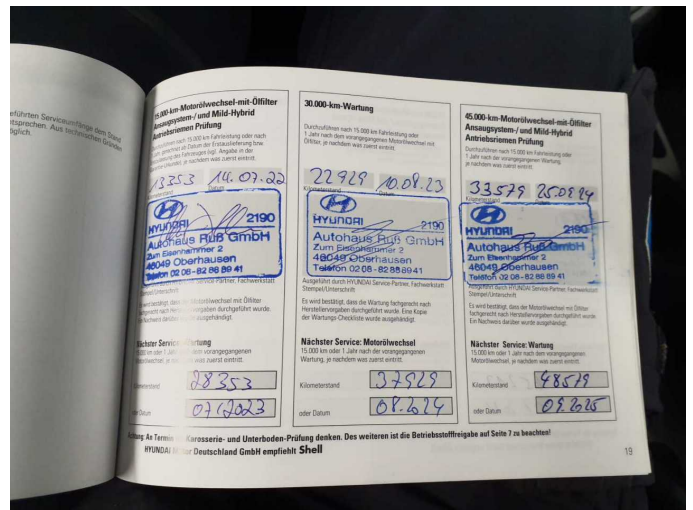 eführten Serviceumfänge dem Stand
tsprechen. Aus technischen Gründen
öglich.
15.000-km-Motorölwechsel-mit-Ölfilter
Ansaugsystem-/ und Mild-Hybrid
Antriebsriemen Prüfung
Durchzuführen nach 15.000 km Fahrleistung oder nach
1 Jahr, gerechnet ab Datum der Erstauslieferung bzw.
Erstzulassung des Fahrzeuges (vgl. Angabe in der
je nachdem was zuerst eintritt.
13353 14.07.22
Kilometerstand Datum
HYUNDAI 2190
Autohaus Ruß GmbH
Zum Eisenhammer 2
46049 Oberhausen
Telefon 02 08 - 82 88 89 41
Service-Partner, Fachwerkstatt
Stempel/Unterschrift
Es wird bestätigt, dass der Motorölwechsel mit Ölfilter
fachgerecht nach Herstellervorgaben durchgeführt wurde.
Ein Nachweis darüber wurde ausgehändigt.
Nächster Service: Wartung
15.000 km oder 1 Jahr nach dem vorangegangenen
Motorölwechsel, je nachdem was zuerst eintritt.
Kilometerstand 28353
oder Datum 07/2023
30.000-km-Wartung
Durchzuführen nach 15.000 km Fahrleistung oder
1 Jahr nach dem vorangegangenen Motorölwechsel mit
Ölfilter, je nachdem was zuerst eintritt.
22929 10.08.23
HYUNDAI 2190
Autohaus Ruß GmbH
Zum Eisenhammer 2
46049 Oberhausen
Telefon 02 08 - 82 88 89 41
Ausgeführt durch HYUNDAI Service-Partner, Fachwerkstatt
Stempel/Unterschrift
Es wird bestätigt, dass die Wartung fachgerecht nach
Herstellervorgaben durchgeführt wurde. Eine Kopie
der Wartungs-Checkliste wurde ausgehändigt.
Nächster Service: Motorölwechsel
15.000 km oder 1 Jahr nach dem vorangegangenen
Motorölwechsel, je nachdem was zuerst eintritt.
Kilometerstand 37929
oder Datum 08.2024
45.000-km-Motorölwechsel-mit-Ölfilter
Ansaugsystem-/ und Mild-Hybrid
Antriebsriemen Prüfung
Durchzuführen nach 15.000 km Fahrleistung oder
1 Jahr nach der vorangegangenen Wartung,
je nachdem was zuerst eintritt.
33579 25.09.24
Kilometerstand
HYUNDAI 2190
Autohaus Ruß GmbH
Zum Eisenhammer 2
46049 Oberhausen
Telefon 02 08 - 82 88 89 41
Ausgeführt durch HYUNDAI Service-Partner, Fachwerkstatt
Stempel/Unterschrift
Es wird bestätigt, dass der Motorölwechsel mit Ölfilter
fachgerecht nach Herstellervorgaben durchgeführt wurde.
Ein Nachweis darüber wurde ausgehändigt.
Nächster Service: Wartung
15.000 km oder 1 Jahr nach dem vorangegangenen
Motorölwechsel, je nachdem was zuerst eintritt.
Kilometerstand 48579
oder Datum 09.2025
Achtung: An Termin Karosserie- und Unterboden-Prüfung denken. Des weiteren ist die Betriebsstofffreigabe auf Seite 7 zu beachten!
HYUNDAI Motor Deutschland GmbH empfiehlt Shell
19